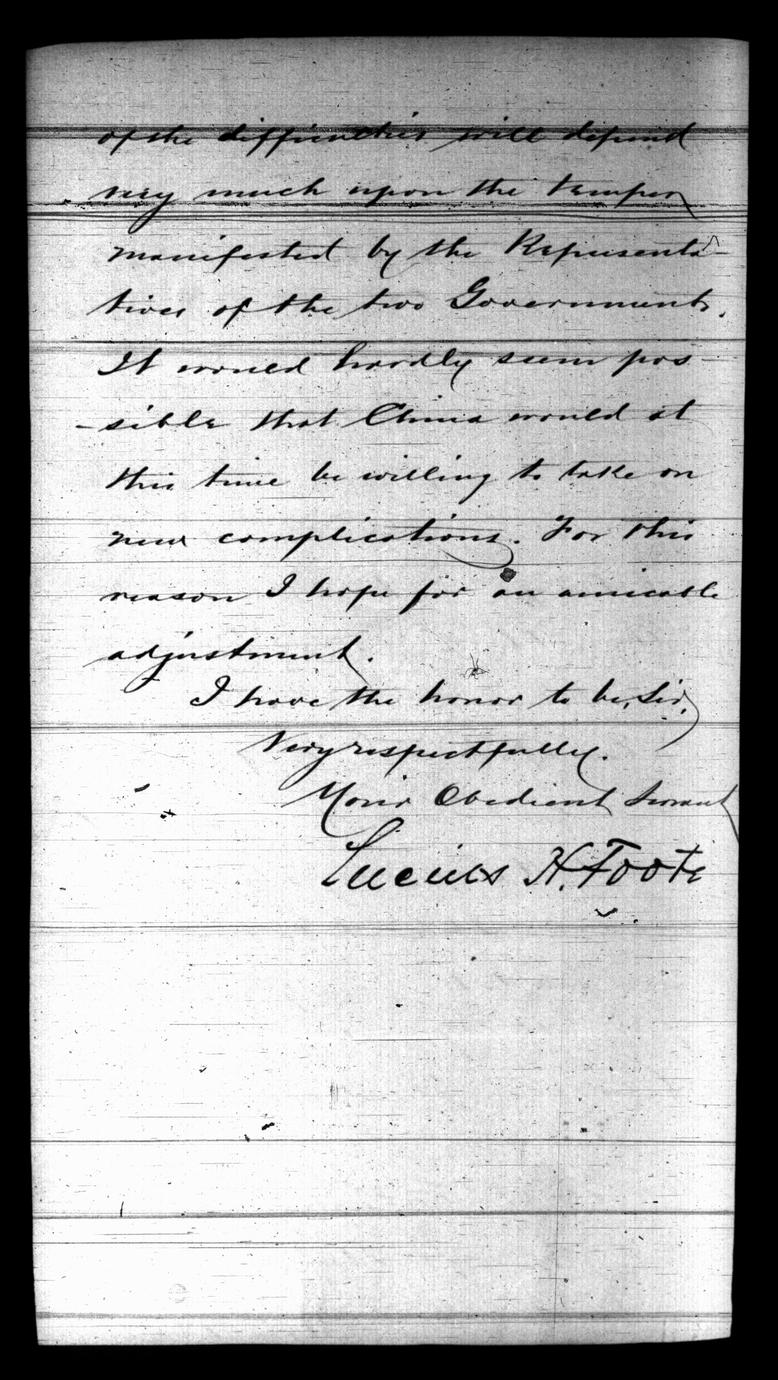 of the difficulties will depend
very much upon the temper
manifested by the Representa-
tives of the two Governments.
It would hardly seem pos-
-sible that China would at
this time be willing to take on
new complications. For this
reason I hope for an amicable
adjustment.
I have the honor to be, Sir,
Very respectfully.
Your Obedient Servant
Lucius H. Foote